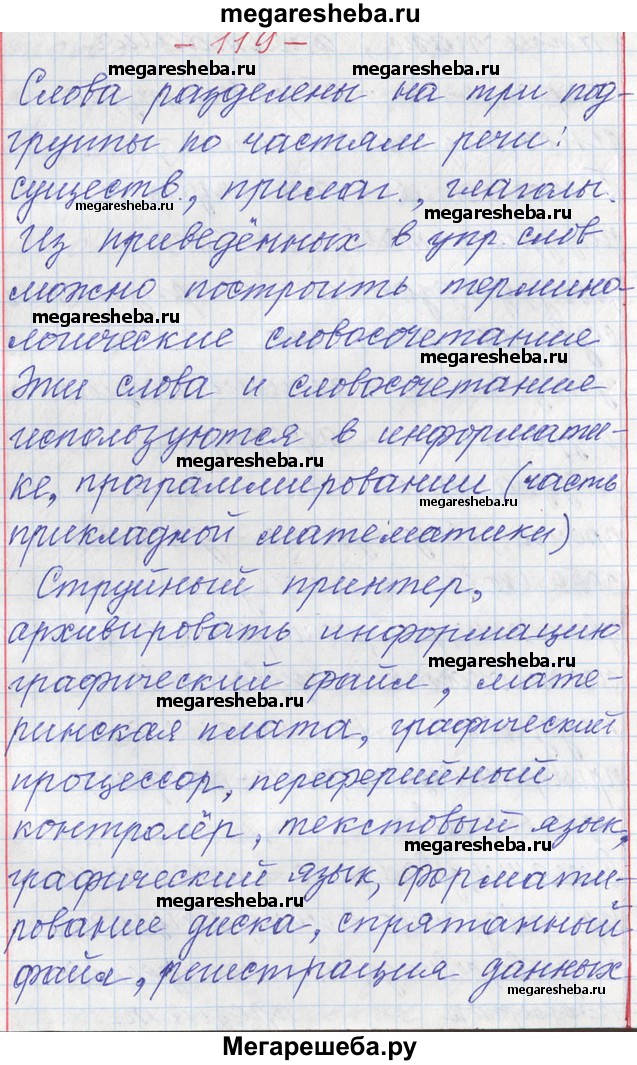 megaresheba.ru
- 119 -
megaresheba.ru megaresheba.ru
Слова разделены на три под-
группы по частям речи:
существ., прилаг., глаголы.
megaresheba.ru megaresheba.ru
Из приведённых в упр. слов
можно построить термино-
megaresheba.ru
логические словосочетание
megaresheba.ru
Эти слова и словосочетание
используются в информати-
megaresheba.ru
ке, программировании (часть
megaresheba.ru
прикладной математики)
Струйный принтер,
архивировать информацию
megaresheba.ru
графический файл, мате-
megaresheba.ru
ринская плата, графический
процессор, переферийный
контролёр, текстовый язык,
megaresheba.ru
графический язык, формати-
megaresheba.ru
рование диска, спрятанный
файл, регистрация данных
megaresheba.ru
Мегарешеба.ру